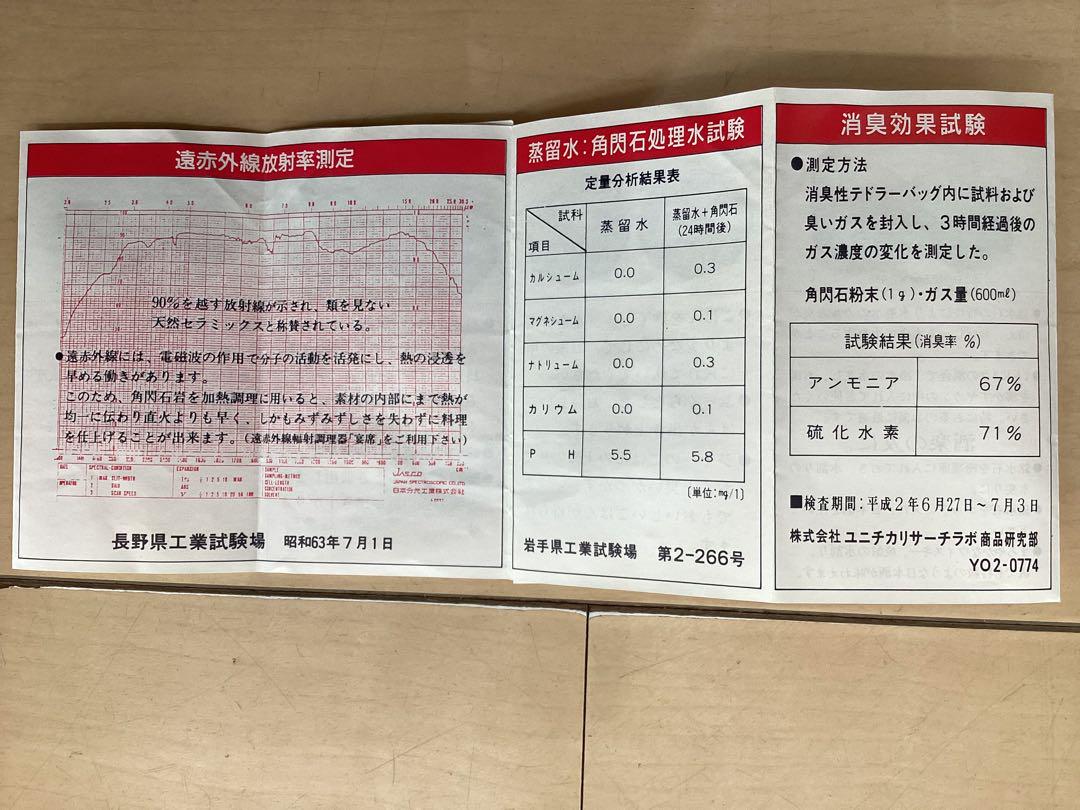 遠赤外線放射率測定
90%を越す放射線が示され、類を見ない
天然セラミックスと称賛されている。
●遠赤外線には、電磁波の作用で分子の活動を活発にし、熱の浸透を
早める働きがあります。
このため、角閃石岩を加熱調理に用いると、素材の内部にまで熱が
均一に伝わり直火よりも早く、しかもみずみずしさを失わずに料理
を仕上げることが出来ます。(遠赤外線輻射調理器「宴席」をご利用下さい)
DATE
OPERATOR
SPECTRAL-CONDITION
1 MAX. SLIT-WIDTH
2 GAIN
3 SCAN SPEED
EXPANSION
ABS
SAMPLE
SAMPLING-METHOD
CELL-LENGTH
CONCENTRATION
SOLVENT
JASCO
JAPAN SPECTROSCOPIC CO.,LTD.
日本分光工業株式会社
長野県工業試験場 昭和63年7月1日
蒸留水:角閃石処理水試験
定量分析結果表
試料
項目
蒸留水
蒸留水+角閃石
(24時間後)
カルシューム 0.0 0.3
マグネシューム 0.0 0.1
ナトリューム 0.0 0.3
カリウム 0.0 0.1
PH 5.5 5.8
〔単位:mg/l〕
岩手県工業試験場 第2-266号
消臭効果試験
●測定方法
消臭性テドラーバッグ内に試料および
臭いガスを封入し、3時間経過後の
ガス濃度の変化を測定した。
角閃石粉末(1g)・ガス量(600ml)
試験結果(消臭率 %)
アンモニア 67%
硫化水素 71%
■検査期間:平成2年6月27日~7月3日
株式会社 ユニチカリサーチラボ 商品研究部
YO2-0774